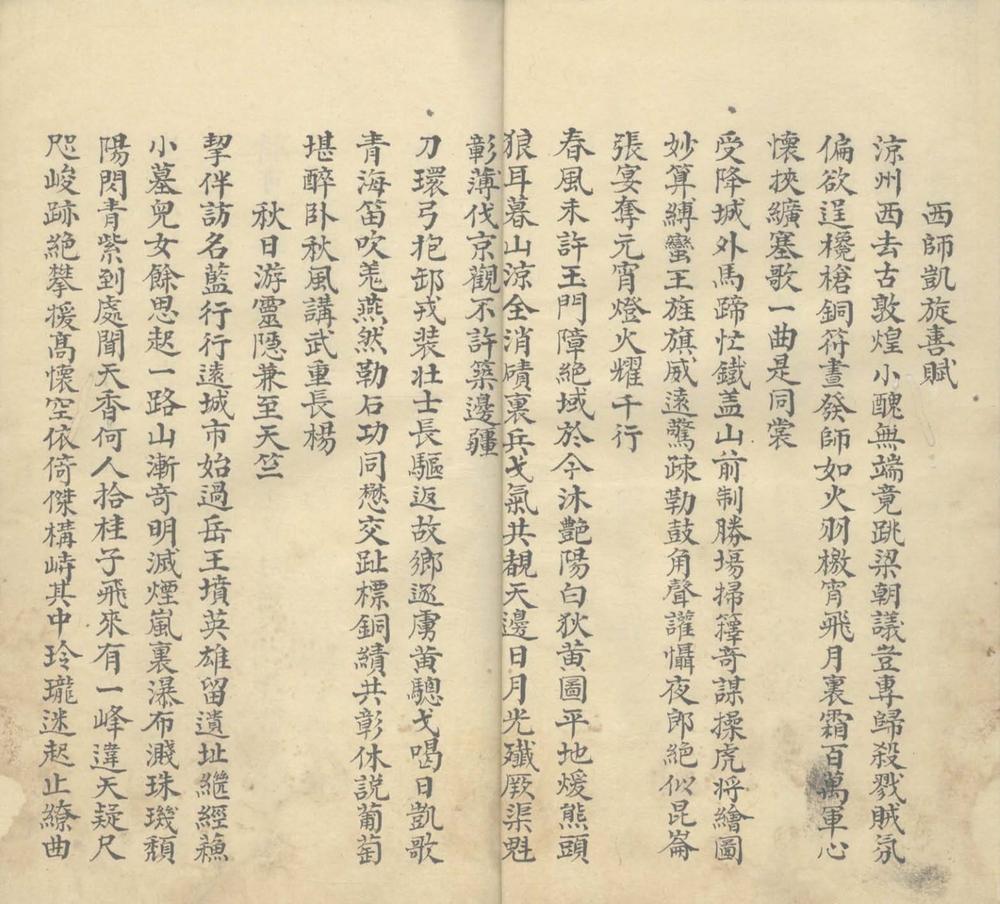 西師凱旋喜賦
涼州西去古敦煌小醜無端竟跳梁朝議豈專歸殺戮賊氛
偏欲逞欃槍銅符晝發師如火羽檄宵飛月裏霜百萬軍心
懷挾纊塞歌一曲是同裳
受降城外馬蹄忙鐵蓋山前制勝場掃籜奇謀操虎將繪圖
妙算縛蠻王旌旗威遠驚疎勒鼓角聲讙懾夜郎絕似昆崙
張宴奪元宵燈火耀千行
春風未許玉門障絕域於今沐艷陽白狄黃圖平地煖熊頭
狼耳暮山涼全消磧裏兵戈氣共覩天邊日月光殲厥渠魁
彰薄伐京觀不許築邊疆
刀環弓抱卸戎裝壯士長驅返故鄉逐虜黃驄戈喝日凱歌
青海笛吹羗燕然勒石功同懋交趾標銅績共彰休説葡萄
堪醉卧秋風講武重長楊
秋日游靈隱兼至天竺
挈伴訪名藍行行遠城市始過岳王墳英雄留遺址繼經蘓
小墓兒女餘思起一路山漸奇明滅煙嵐裏瀑布濺珠璣頹
陽閃青紫到處聞天香何人拾桂子飛來有一峰違天疑尺
咫峻跡絕攀援高懷空依倚傑構峙其中玲瓏迷起止繚曲